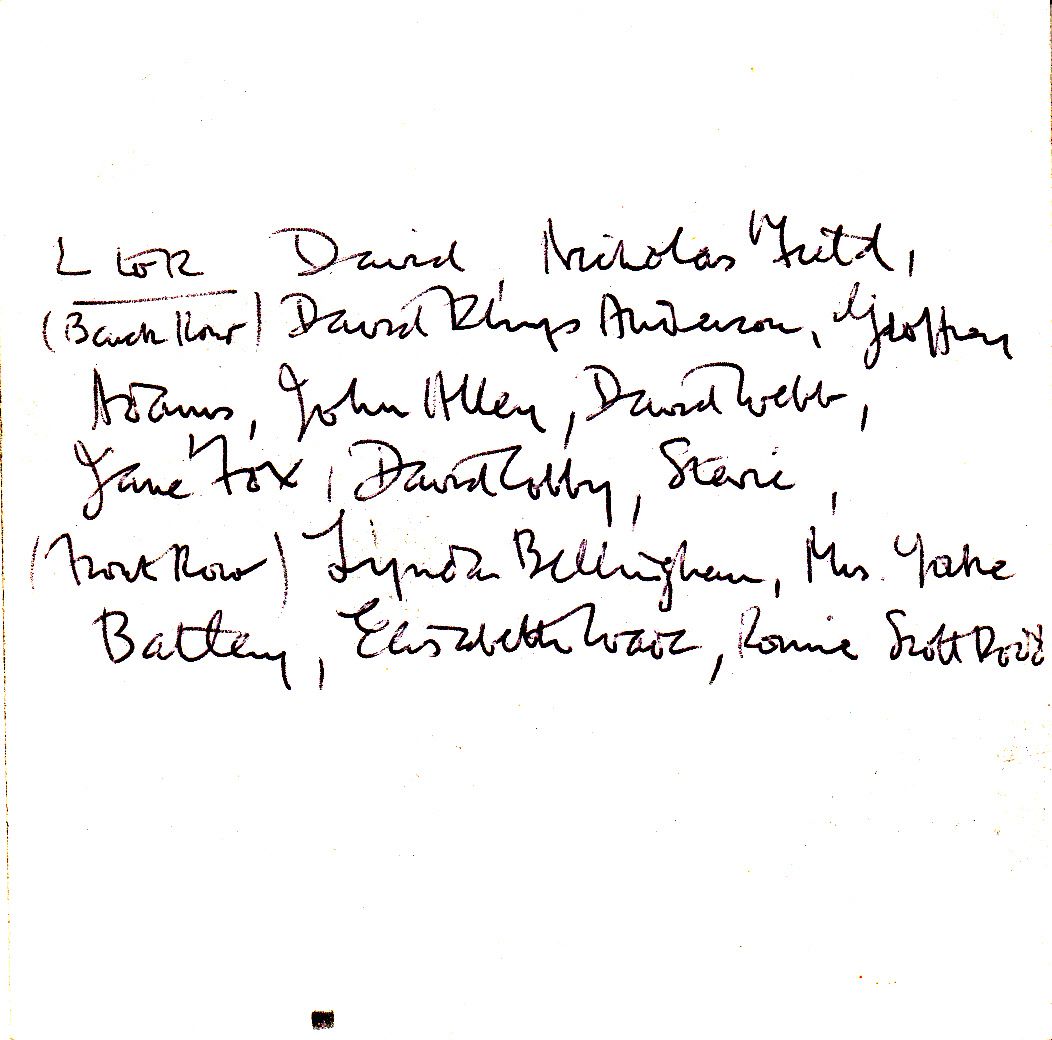 L to R David, Nicholas Field,
(Back Row) David Rhys Anderson, Geoffrey
Adams, John Alley, David Webb,
Jane Fox, David Cobby, Stevie,
(Front Row) Lynda Bellingham, Mrs.
Battey, Elisabeth, Ronnie Scott Dodd